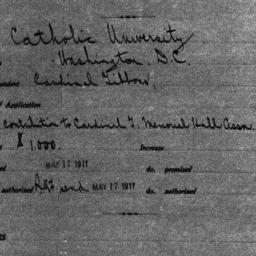 Catholic University
Washington, D.C.
Cardinal Gibbons,
Application
Contribution to Cardinal G. Memorial Hall Assn.
$1,000. Increase
MAY 17 1911 do. promised
authorized send MAY 17 1911 do. authorized